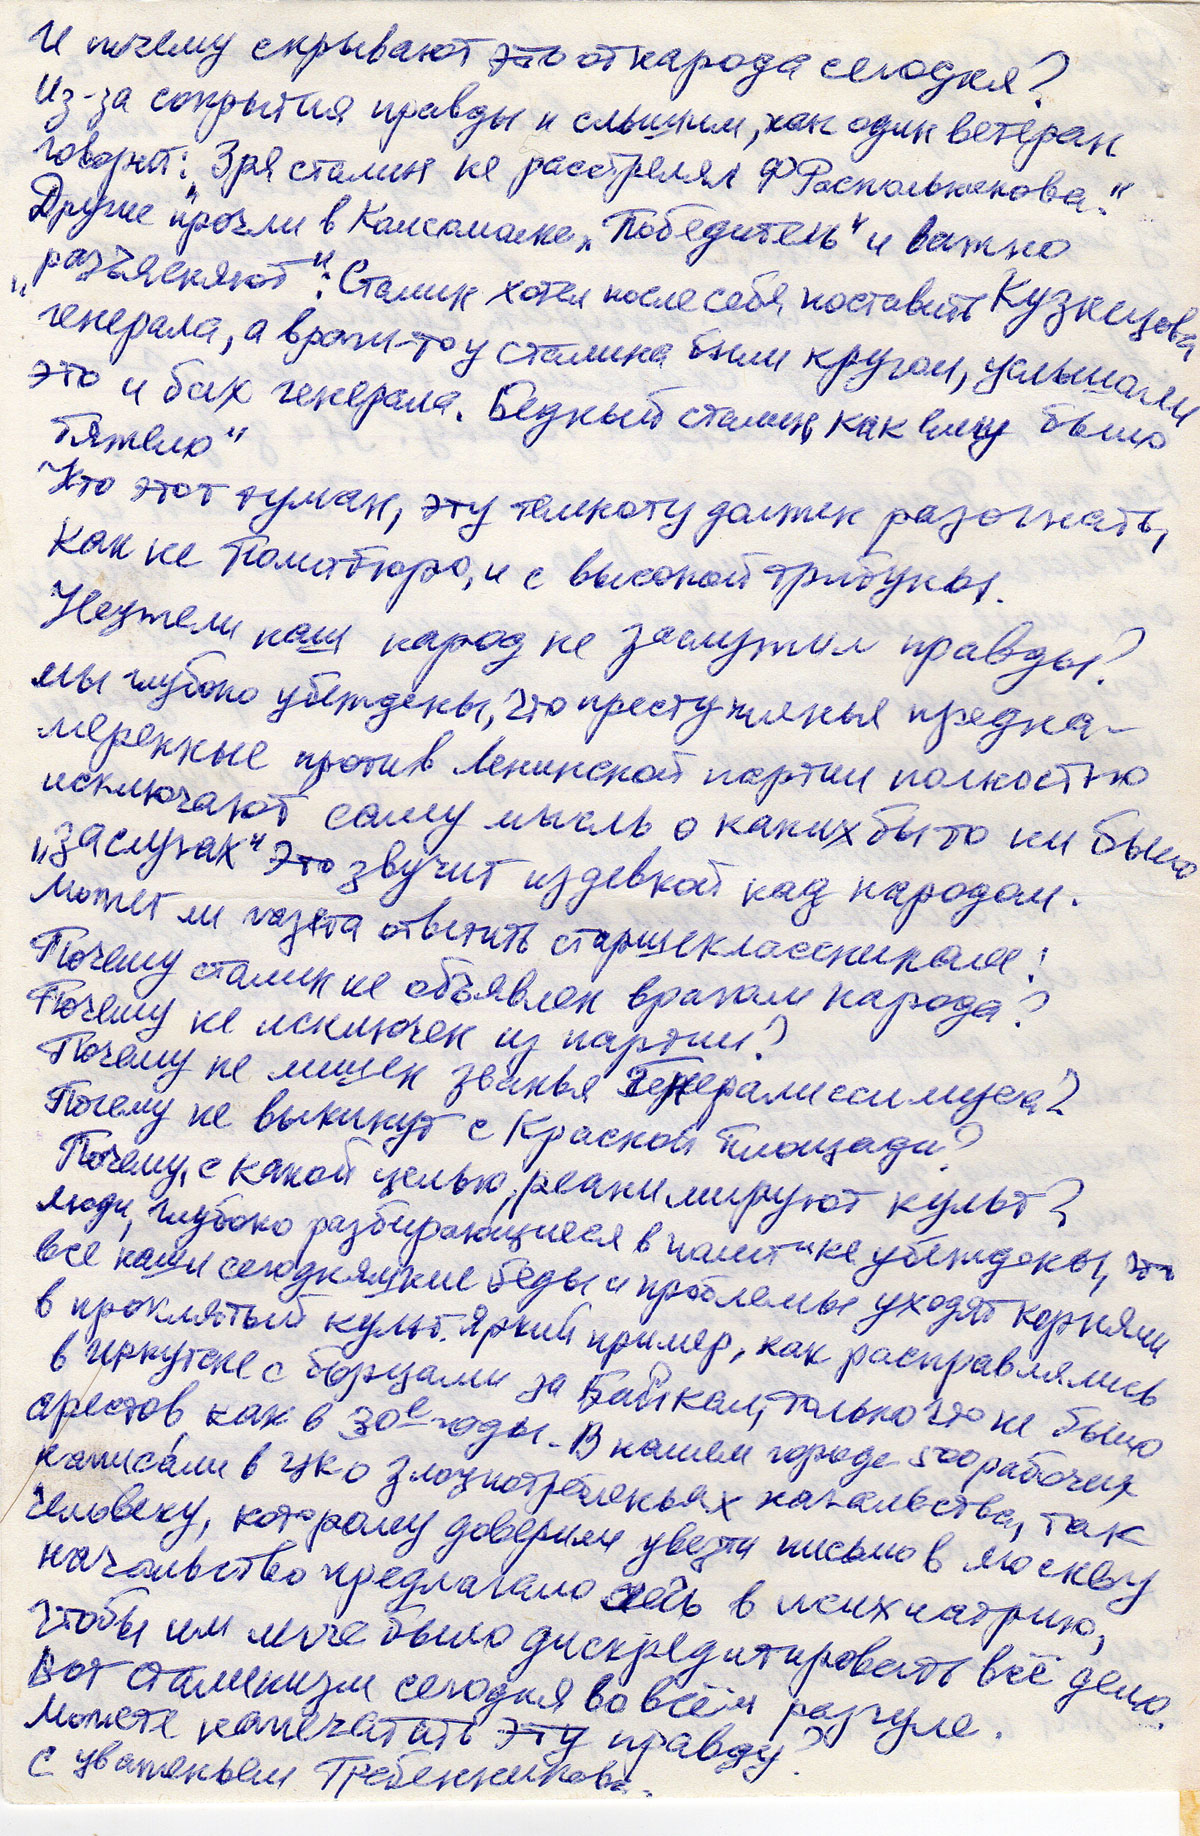 И почему скрывают это от народа сегодня?
Из-за сокрытия правды и слышим, как один ветеран
говорит: „Зря сталин не расстрелял Ф Раскольникова."
Другие прочли в Комсомолке „Победитель" и важно
„разъясняют": Сталин хотел после себя поставить Кузнецова
генерала, а враги-то у сталина были кругом, услышали
это и бах генерала. Бедный сталин, как ему было
тяжело"
Кто этот туман, эту темноту должен разогнать,
как не Политбюро, и с высокой трибуны.
Неужели наш народ не заслужил правды?
Мы глубоко убеждены, что преступленья предна-
меренные против Ленинской партии полностью
исключают саму мысль о каких бы то ни было
„заслугах" это звучит издевкой над народом.
Может ли газета ответить старшеклассникам:
Почему сталин не объявлен врагом народа?
Почему не исключен из партии?
Почему не лишен званья Генералиссимуса?
Почему не выкинут с Красной Площади?
Почему, с какой целью, реанимируют культ?
Люди, глубоко разбирающиеся в политике убеждены, что
все наши сегодняшние беды и проблемы уходят корнями
в проклятый культ. Яркий пример, как расправлялись
в Иркутске с борцами за Байкал, только что не было
арестов, как в 30е годы. В нашем городе 500 рабочих
написали в цк о злоупотребленьях начальства, так
человеку, которому доверили увезти письмо в Москву
начальство предлагало сесть в психиатрию,
чтобы им легче было дискредитировать всё дело.
Вот сталинизм сегодня во всём разгуле.
Можете напечатать эту правду?
С уваженьем Гребенникова.